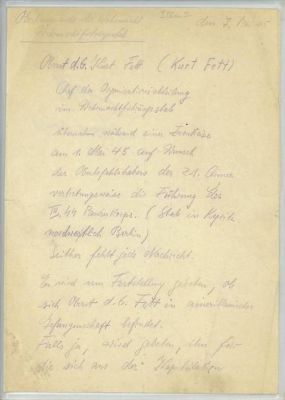 Oberkommando der Wehrmacht den 7. Mai 45
Wehrmachtführungsstab
Oberst d.G. Kurt Fett (Kurt Fett)
Chef der Organisationsabteilung
im Wehrmachtführungsstab
übernahm während einer
am 1. Mai 45 auf Wunsch
des Oberbefehlshabers der 21. Armee
vertretungsweise die Führung des
Panzerkorps. (Stab in Kyritz
nordwestlich Berlin)
Seither fehlt jede Nachricht.
Es wird um Feststellung gebeten, ob
sich Oberst d.G. Fett in amerikanischer
Gefangenschaft befindet.
Falls ja, wird gebeten, ihn für
die sich aus der Kapitulation